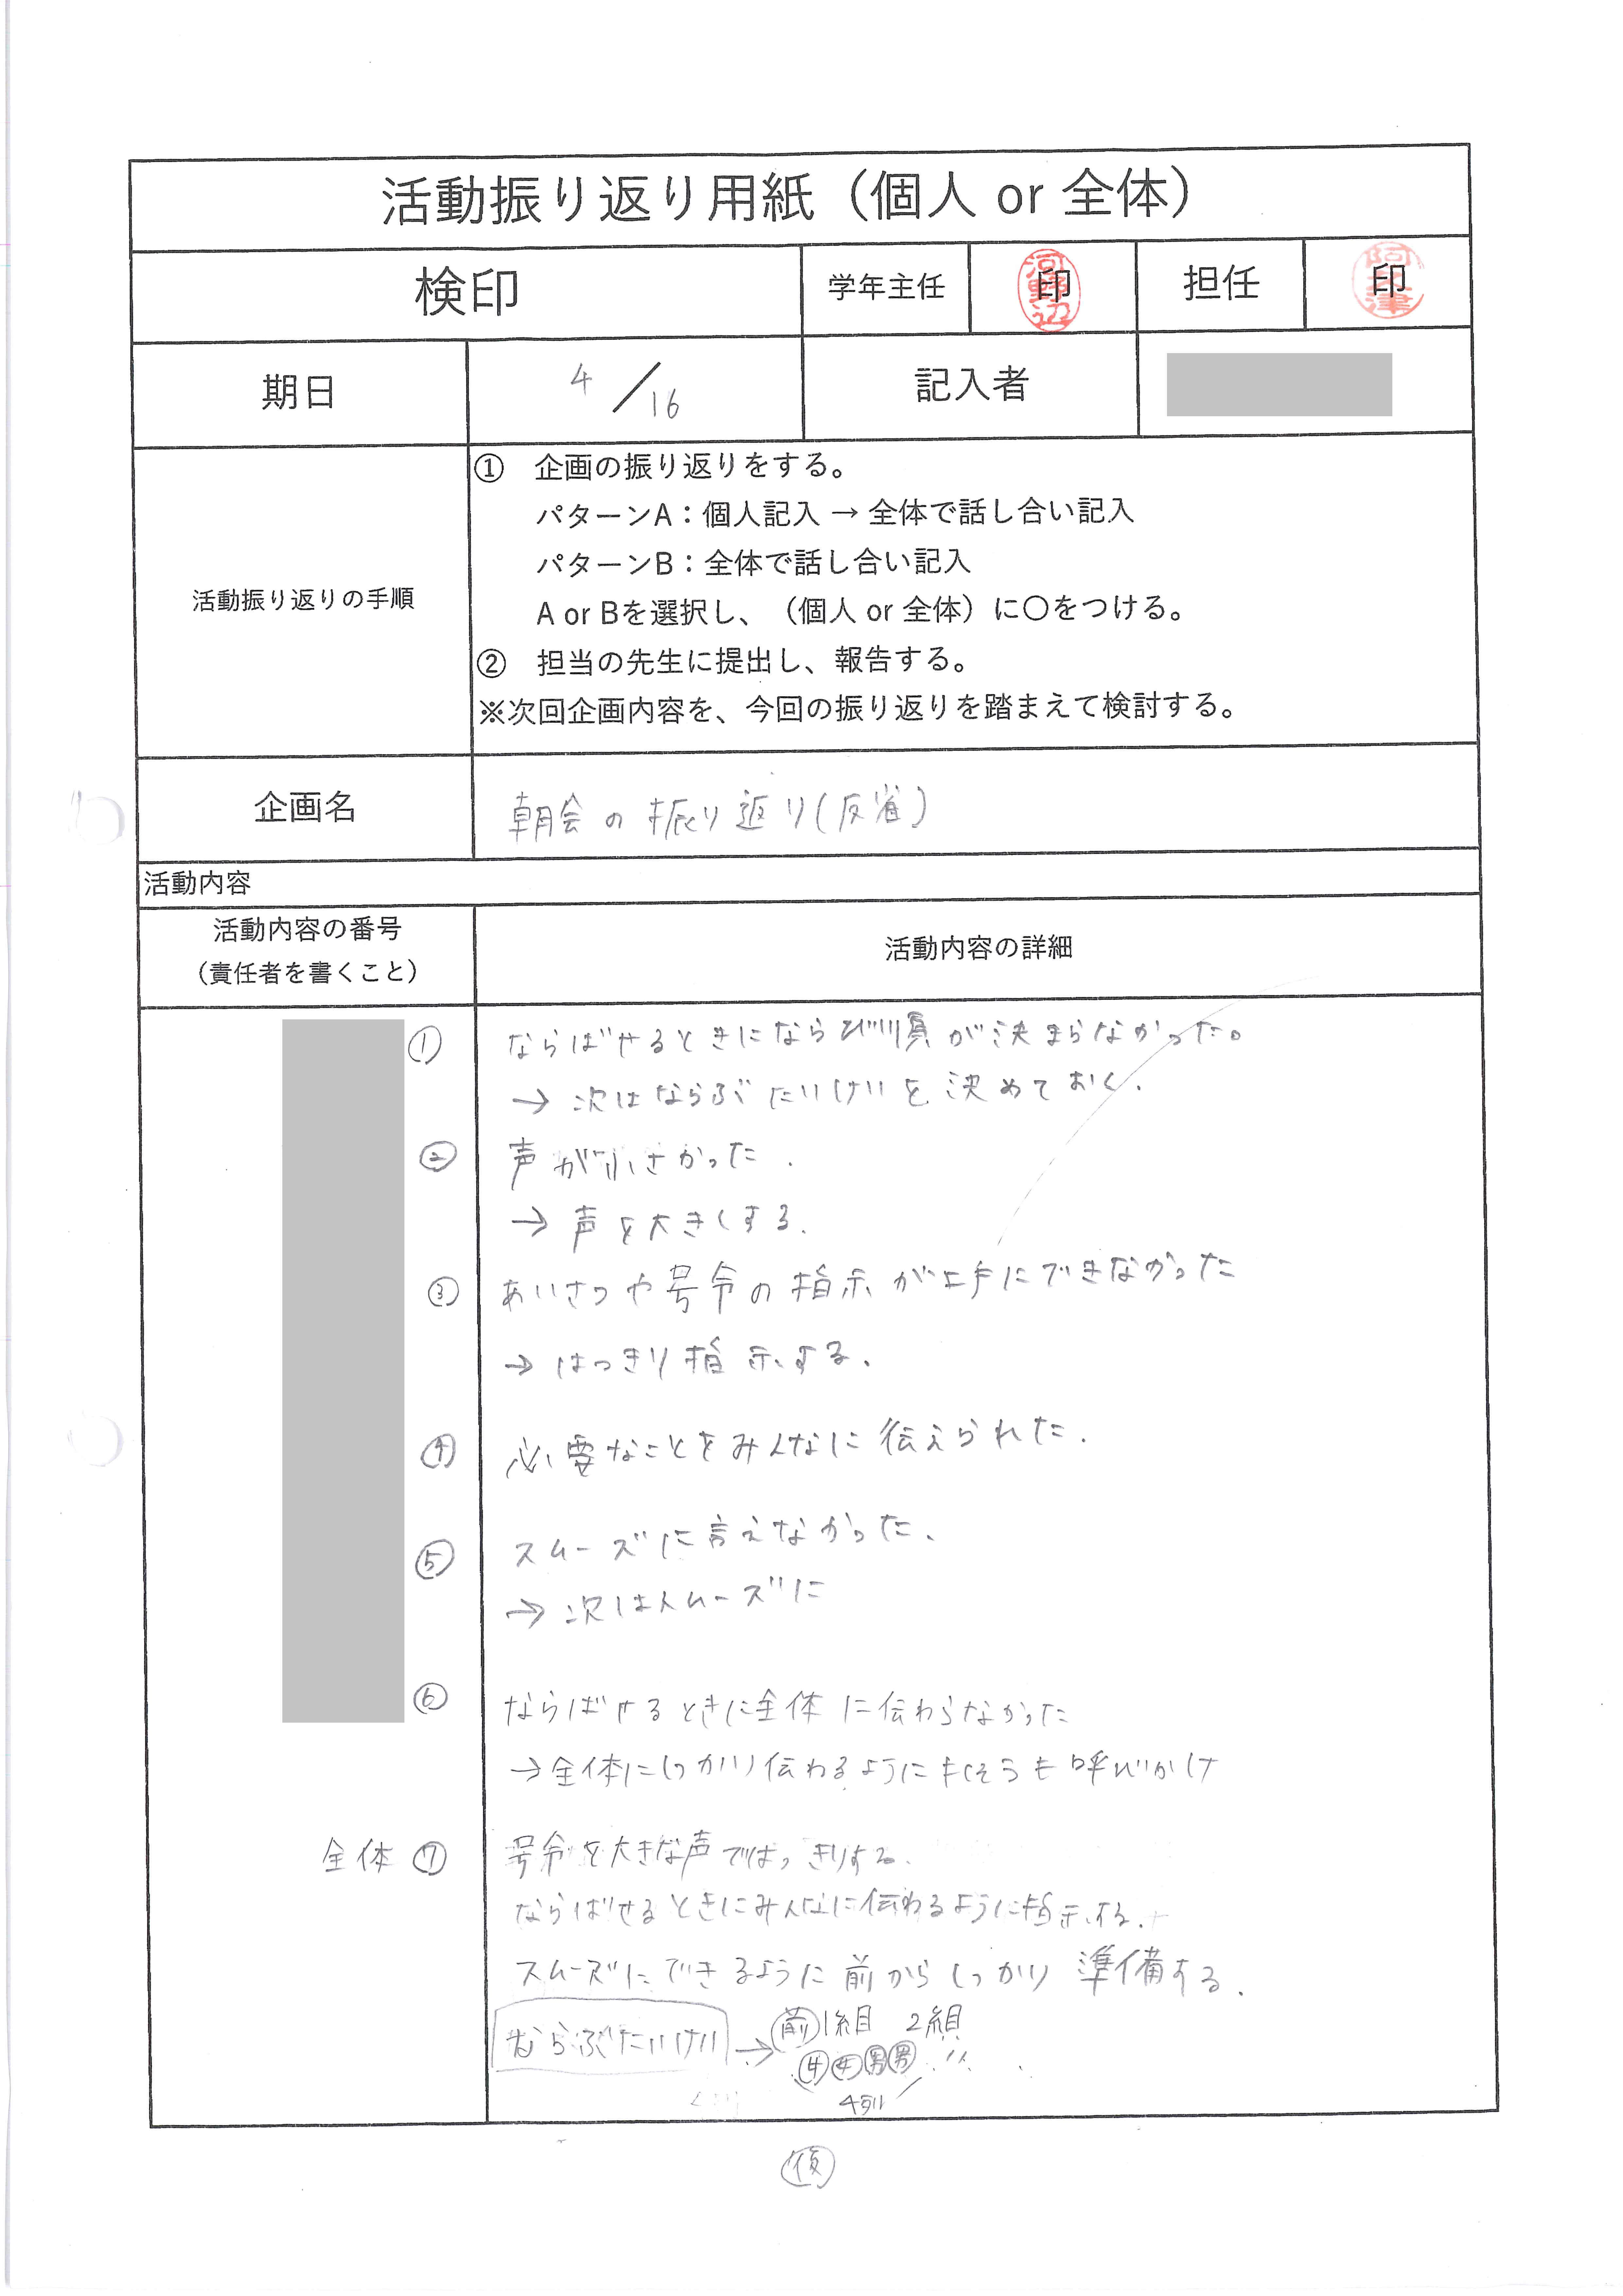 活動振り返り用紙（個人 or 全体）
検印 学年主任 印 河野辺 担任 印 阿久津
期日 4/16 記入者
活動振り返りの手順
① 企画の振り返りをする。
パターンA：個人記入 → 全体で話し合い記入
パターンB：全体で話し合い記入
A or Bを選択し、（個人 or 全体）に〇をつける。
② 担当の先生に提出し、報告する。
※次回企画内容を、今回の振り返りを踏まえて検討する。
企画名 朝会の振り返り(反省)
活動内容
活動内容の番号
（責任者を書くこと）
活動内容の詳細
① ならばせるときにならび順が決まらなかった。
→ 次はならぶたいけいを決めておく.
② 声が小さかった.
→ 声を大きくする.
③ あいさつや号令の指示が上手にできなかった
→ はっきり指示する.
④ 必要なことをみんなに伝えられた.
⑤ スムーズに言えなかった.
→ 次はスムーズに
⑥ ならばせるときに全体に伝わらなかった
→全体にしっかり伝わるように も呼びかけ
全体 ⑦ 号令を大きな声ではっきりする.
ならばせるときにみんなに伝わるように指示する.
スムーズにできるように前からしっかり準備する.
ならぶたいけい → 前 1組目 2組目
女 女 男 男 〃
4列
後